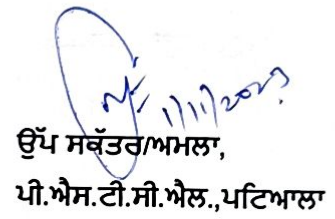 1/11/2023
ਉੱਪ ਸਕੱਤਰ/ਅਮਲਾ,
ਪੀ.ਐਸ.ਟੀ.ਸੀ.ਐਲ.,ਪਟਿਆਲਾ